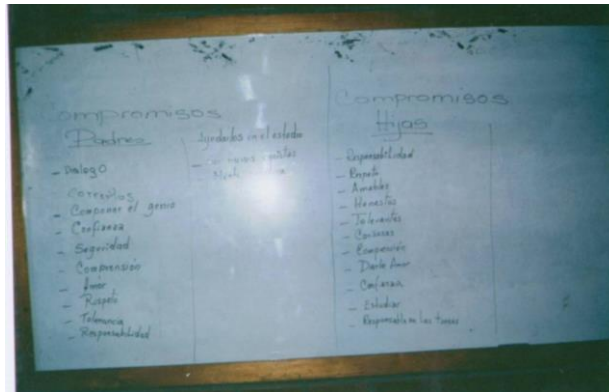 Compromisos
Padres
- Dialogo
Corregirlos
- Componer el genio
- Confianza
- Seguridad
- Comprensión
- Amor
- Respeto
- Tolerancia
- Responsabilidad
Ayudarlos en el estudio
Compromisos
Hijas
- Responsabilidad
- Respeto
- Amables
- Honestas
- Tolerantes
- Cariñosas
- Comprensión
- Darle Amor
- Confianza
- Estudiar
- Responsable en las tareas